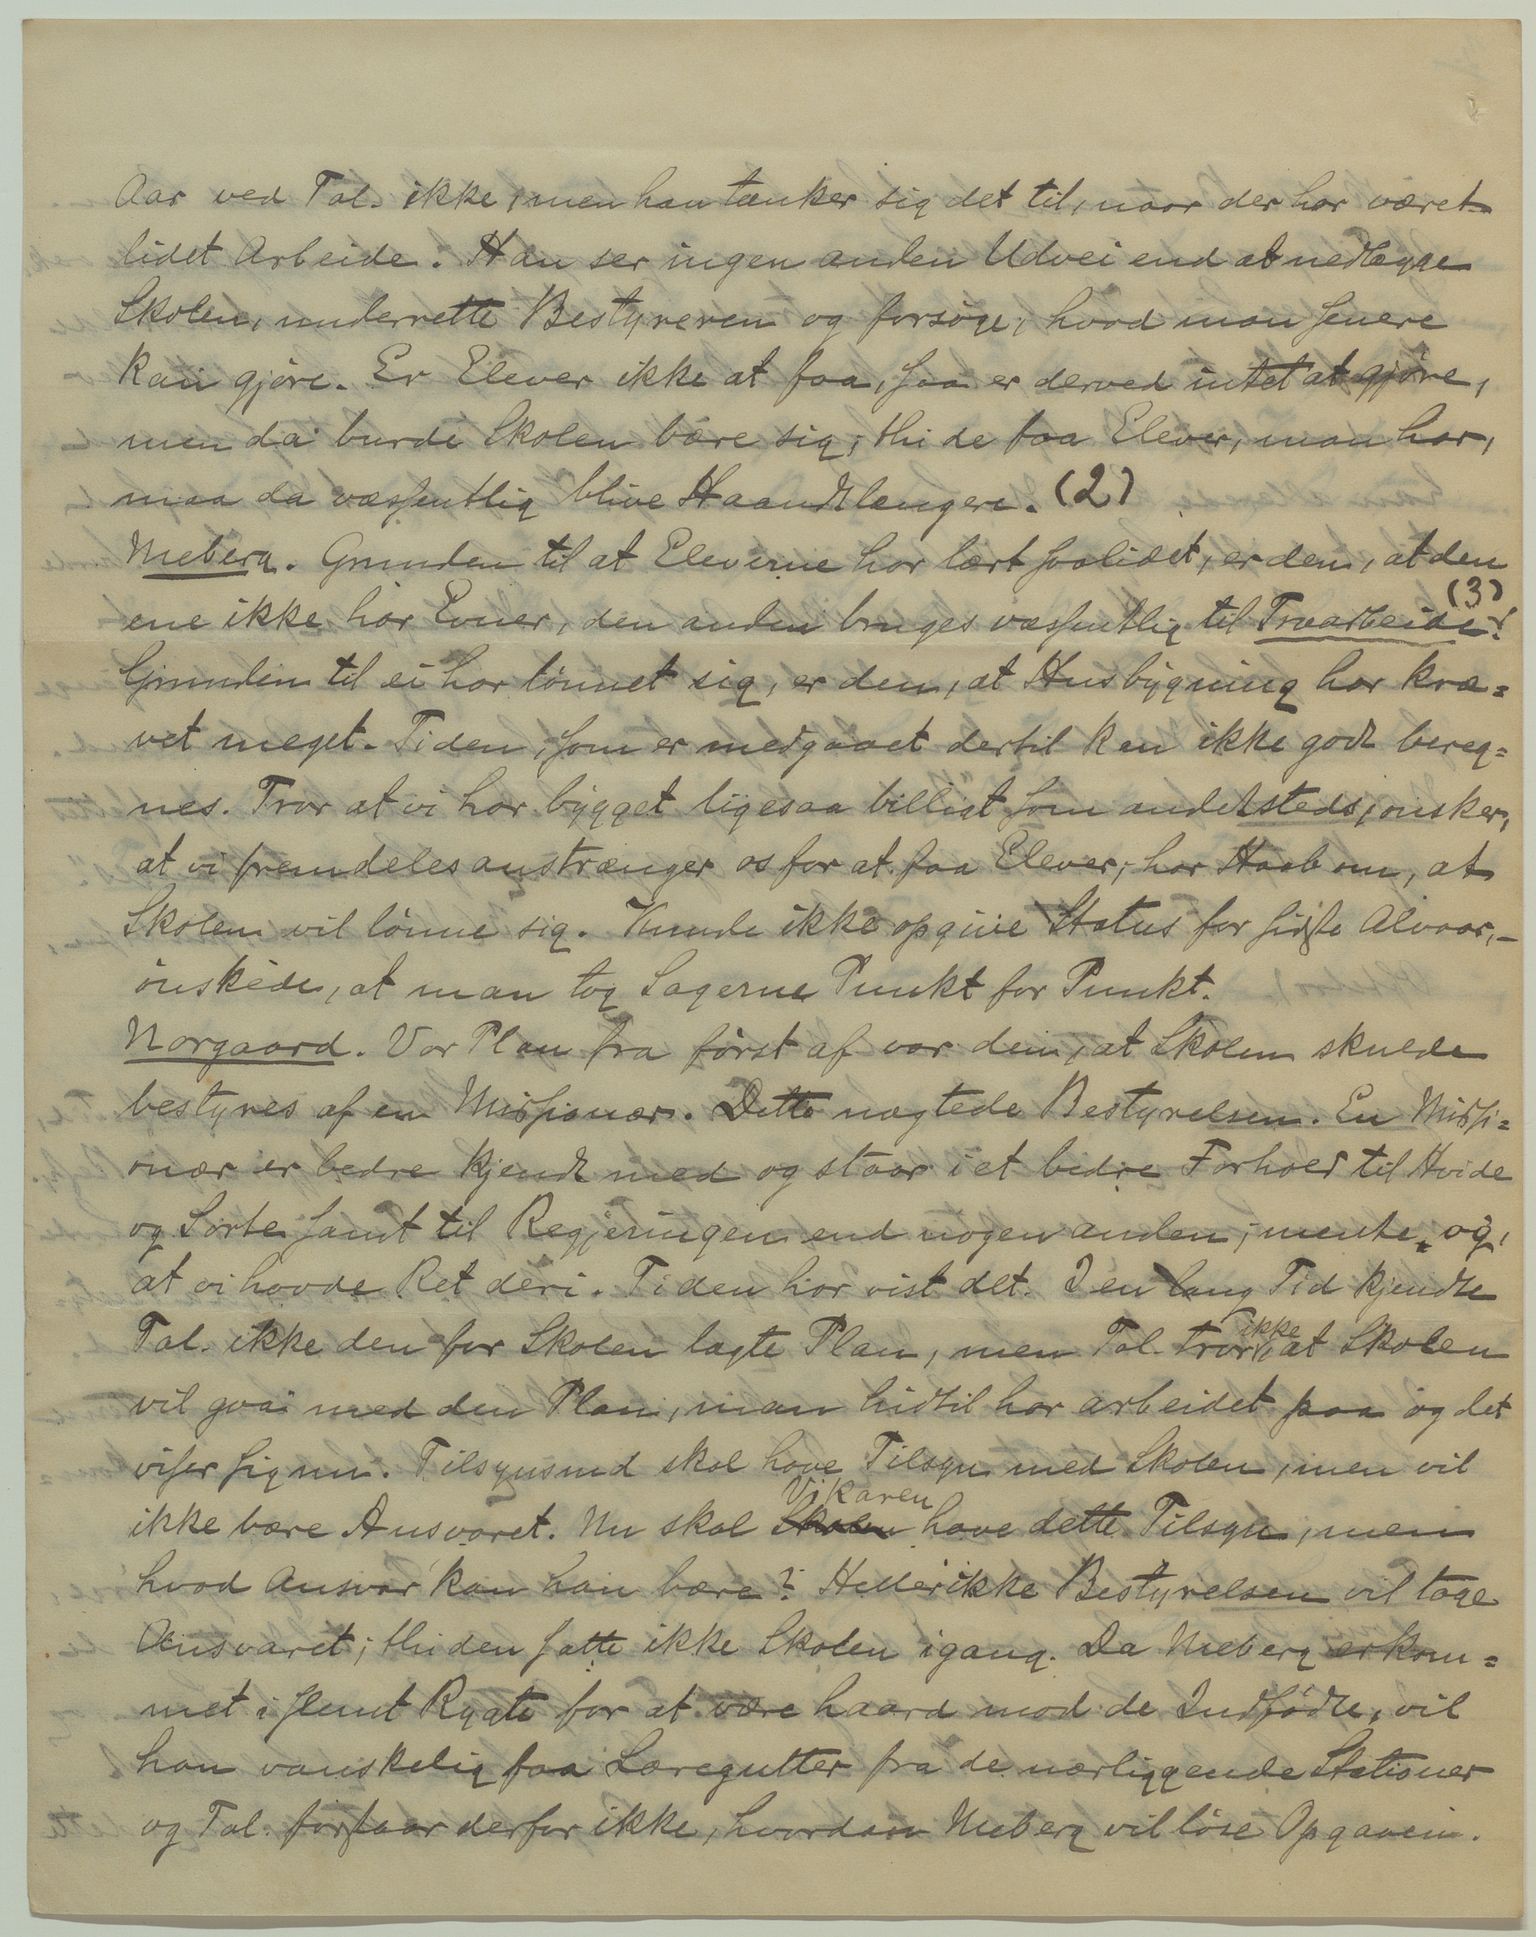 Aar ved Tal. ikke, men han tænker sig det til, naar der har været
lidet Arbeide. Han ser ingen anden Udvei end at nedlægge
Skolen, underrette Bestyreren og forsøge, hvad man senere
kan gjøre. Er Elever ikke at faa, saa er derved intet at gjøre,
men da burde Skolen bære sig, thi de faa Elever, man har,
maa da væsentlig blive Haandtlangere. (2)
Meberg. Grunden til at Eleverne har lært saalidet, er den, at den
ene ikke har Evner, den anden bruges væsentlig til Træarbeide. (3)
Grunden til ei har lønnet sig, er den, at Husbygning har kræ=
vet meget. Tiden, som er medgaaet dertil kan ikke godt bereg=
nes. Tror at vi har bygget ligesaa billigt som andetsteds, ønsker,
at vi fremdeles anstrænger os for at faa Elever, har Haab om, at
Skolen vil lønne sig. Kunde ikke opgive Status for sidste Alvaar, –
ønskede, at man tog Sagerne Punkt for Punkt.
Norgaard. Vor Plan fra først af var den, at Skolen skulde
bestyres af en Missionær. Dette nægtede Bestyrelsen. En Missi=
onær er bedre kjendt med og staar i et bedre Forhold til Hvide
og Sorte samt til Regjeringen end nogen anden, mente og,
at vi havde Ret deri. Tiden har vist det. I en lang Tid kjendte
Tal. ikke den for Skolen lagte Plan, men Tal. tror ikke, at Skolen
vil gaa med den Plan, man hidtil har arbeidet paa og det
viser sig nu. Tilsynsmd skal have Tilsyn med Skolen, men vil
ikke bære Ansvaret. Nu skal Skolen Vikaren have dette Tilsyn, men
hvad Ansvar kan han bære? Heller ikke Bestyrelsen vil tage
Ansvaret; thi den satte ikke Skolen igang. Da Meberg er kom=
met i slemt Rygte for at være haard mod de Indfødte, vil
han vanskelig faa Læregutter fra de nærliggende Stationer
og Tal. forstaar derfor ikke, hvordan Meberg vil løse Opgaven.